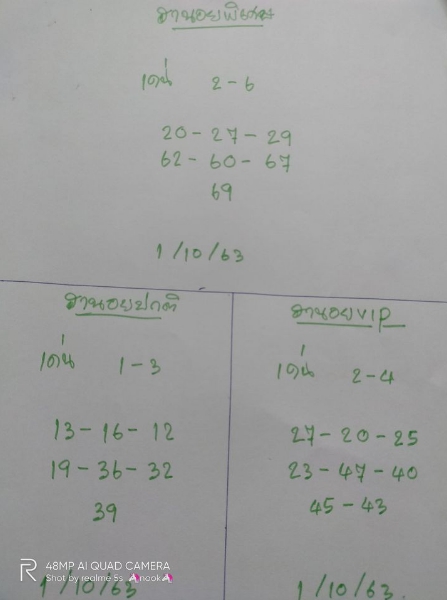 ฮานอยพิเศษ
เด่น 2-6
20-27-29
62-60-67
69
1/10/63
ฮานอยปกติ
เด่น 1-3
13-16-12
19-36-32
39
1/10/63
ฮานอยVIP
เด่น 2-4
27-20-25
23-47-40
45-43
1/10/63.
48MP AI QUAD CAMERA
Shot by realme 5s AnookA